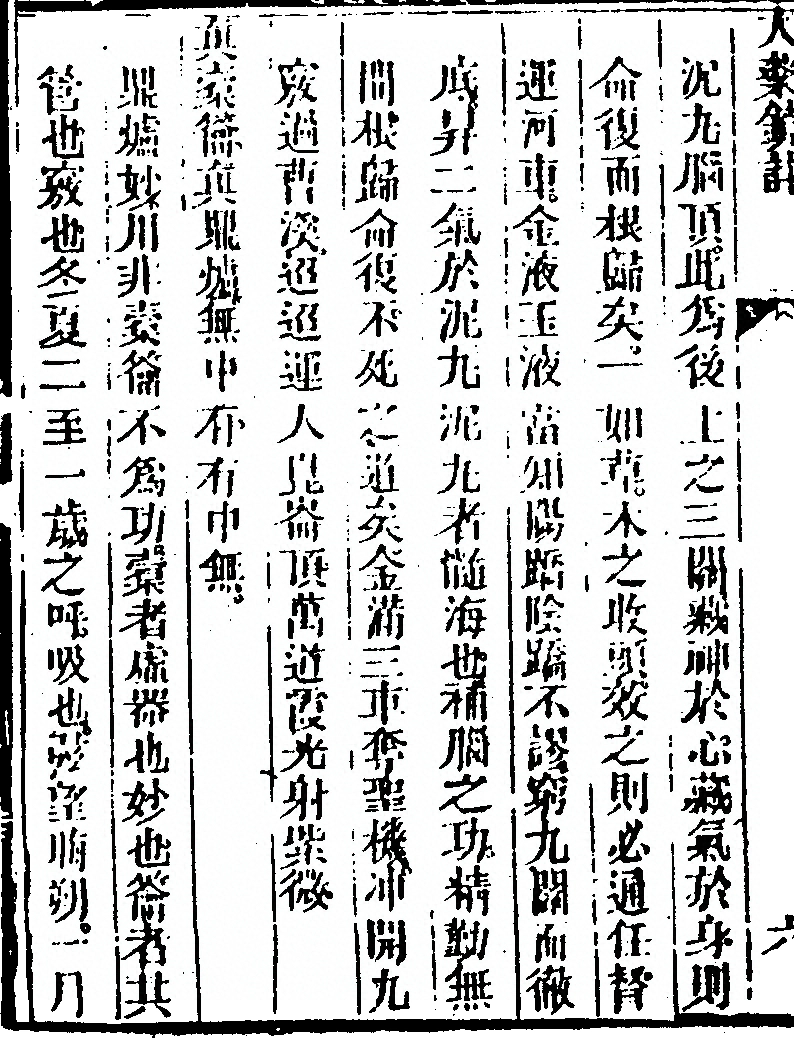 大藥鏡註
六
泥九腦頂此爲後上之三關藏神於心藏氣於身則
命復而根歸矣一如草木之收頭效之則必通任督
運河車金液玉液當知陽蹻陰蹻不謬窮九關而徹
底昇二氣於泥九泥九者髓海也補腦之功精勤無
間根歸命復不死之道矣金滿三車奪聖機冲開九
竅過曹溪迢迢運入崑崙頂萬道霞光射紫微
眞橐籥眞鼎爐無中有有中無
鼎爐妙用非橐籥不爲功橐者虛器也妙也籥者共
管也竅也冬夏二至一歲之呼吸也弦望晦朔一月